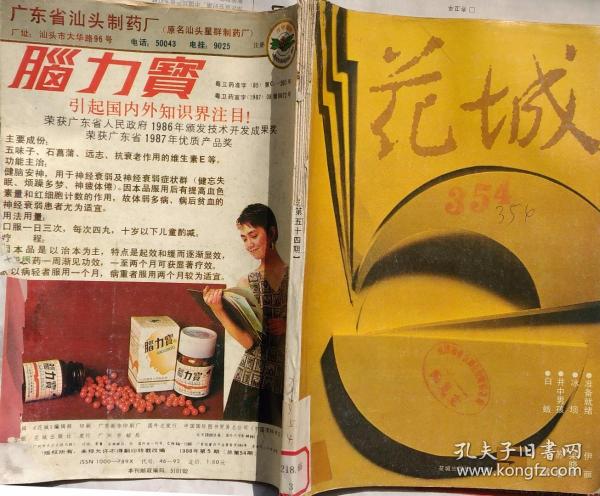 广东省汕头制药厂
（原名汕头星群制药厂）
厂址：汕头市大华路96号
电话：50043
电挂：9025
注册
腦力寶
引起国内外知识界注目！
荣获广东省人民政府1986年颁发技术开发成果奖
荣获广东省1987年优质产品奖
主要成份：
五味子、石菖蒲、远志、抗衰老作用的维生素E等。
功能主治：
健脑安神，用于神经衰弱及神经衰弱症状群（健忘失
眠、烦躁多梦、神疲体倦）。因本品服用后有提高血色
素量和红细胞计数的作用，故体弱多病、病后贫血的
神经衰弱患者尤为适宜。
用法用量：
口服一日三次，每次四丸，十岁以下儿童酌减。
疗程：
本品是以治本为主，特点是起效和缓而逐渐显效，
服药一周渐见功效，一至两个月可获显著疗效。
以病轻者服用一个月，病重者服用两个月较为适宜。
腦力寶
腦力寶
《花城》编辑部
花城出版社
1988年第5期 总第54期
ISSN 1000-789X
代号：46-92
定价：1.80元
本刊邮政编码：510
【第五十四期】
218.
3
花城
354
354
●准备就绪
●冰坝
●井中男孩
●白蚁
伊蕾
花城出版
孔夫子旧书网